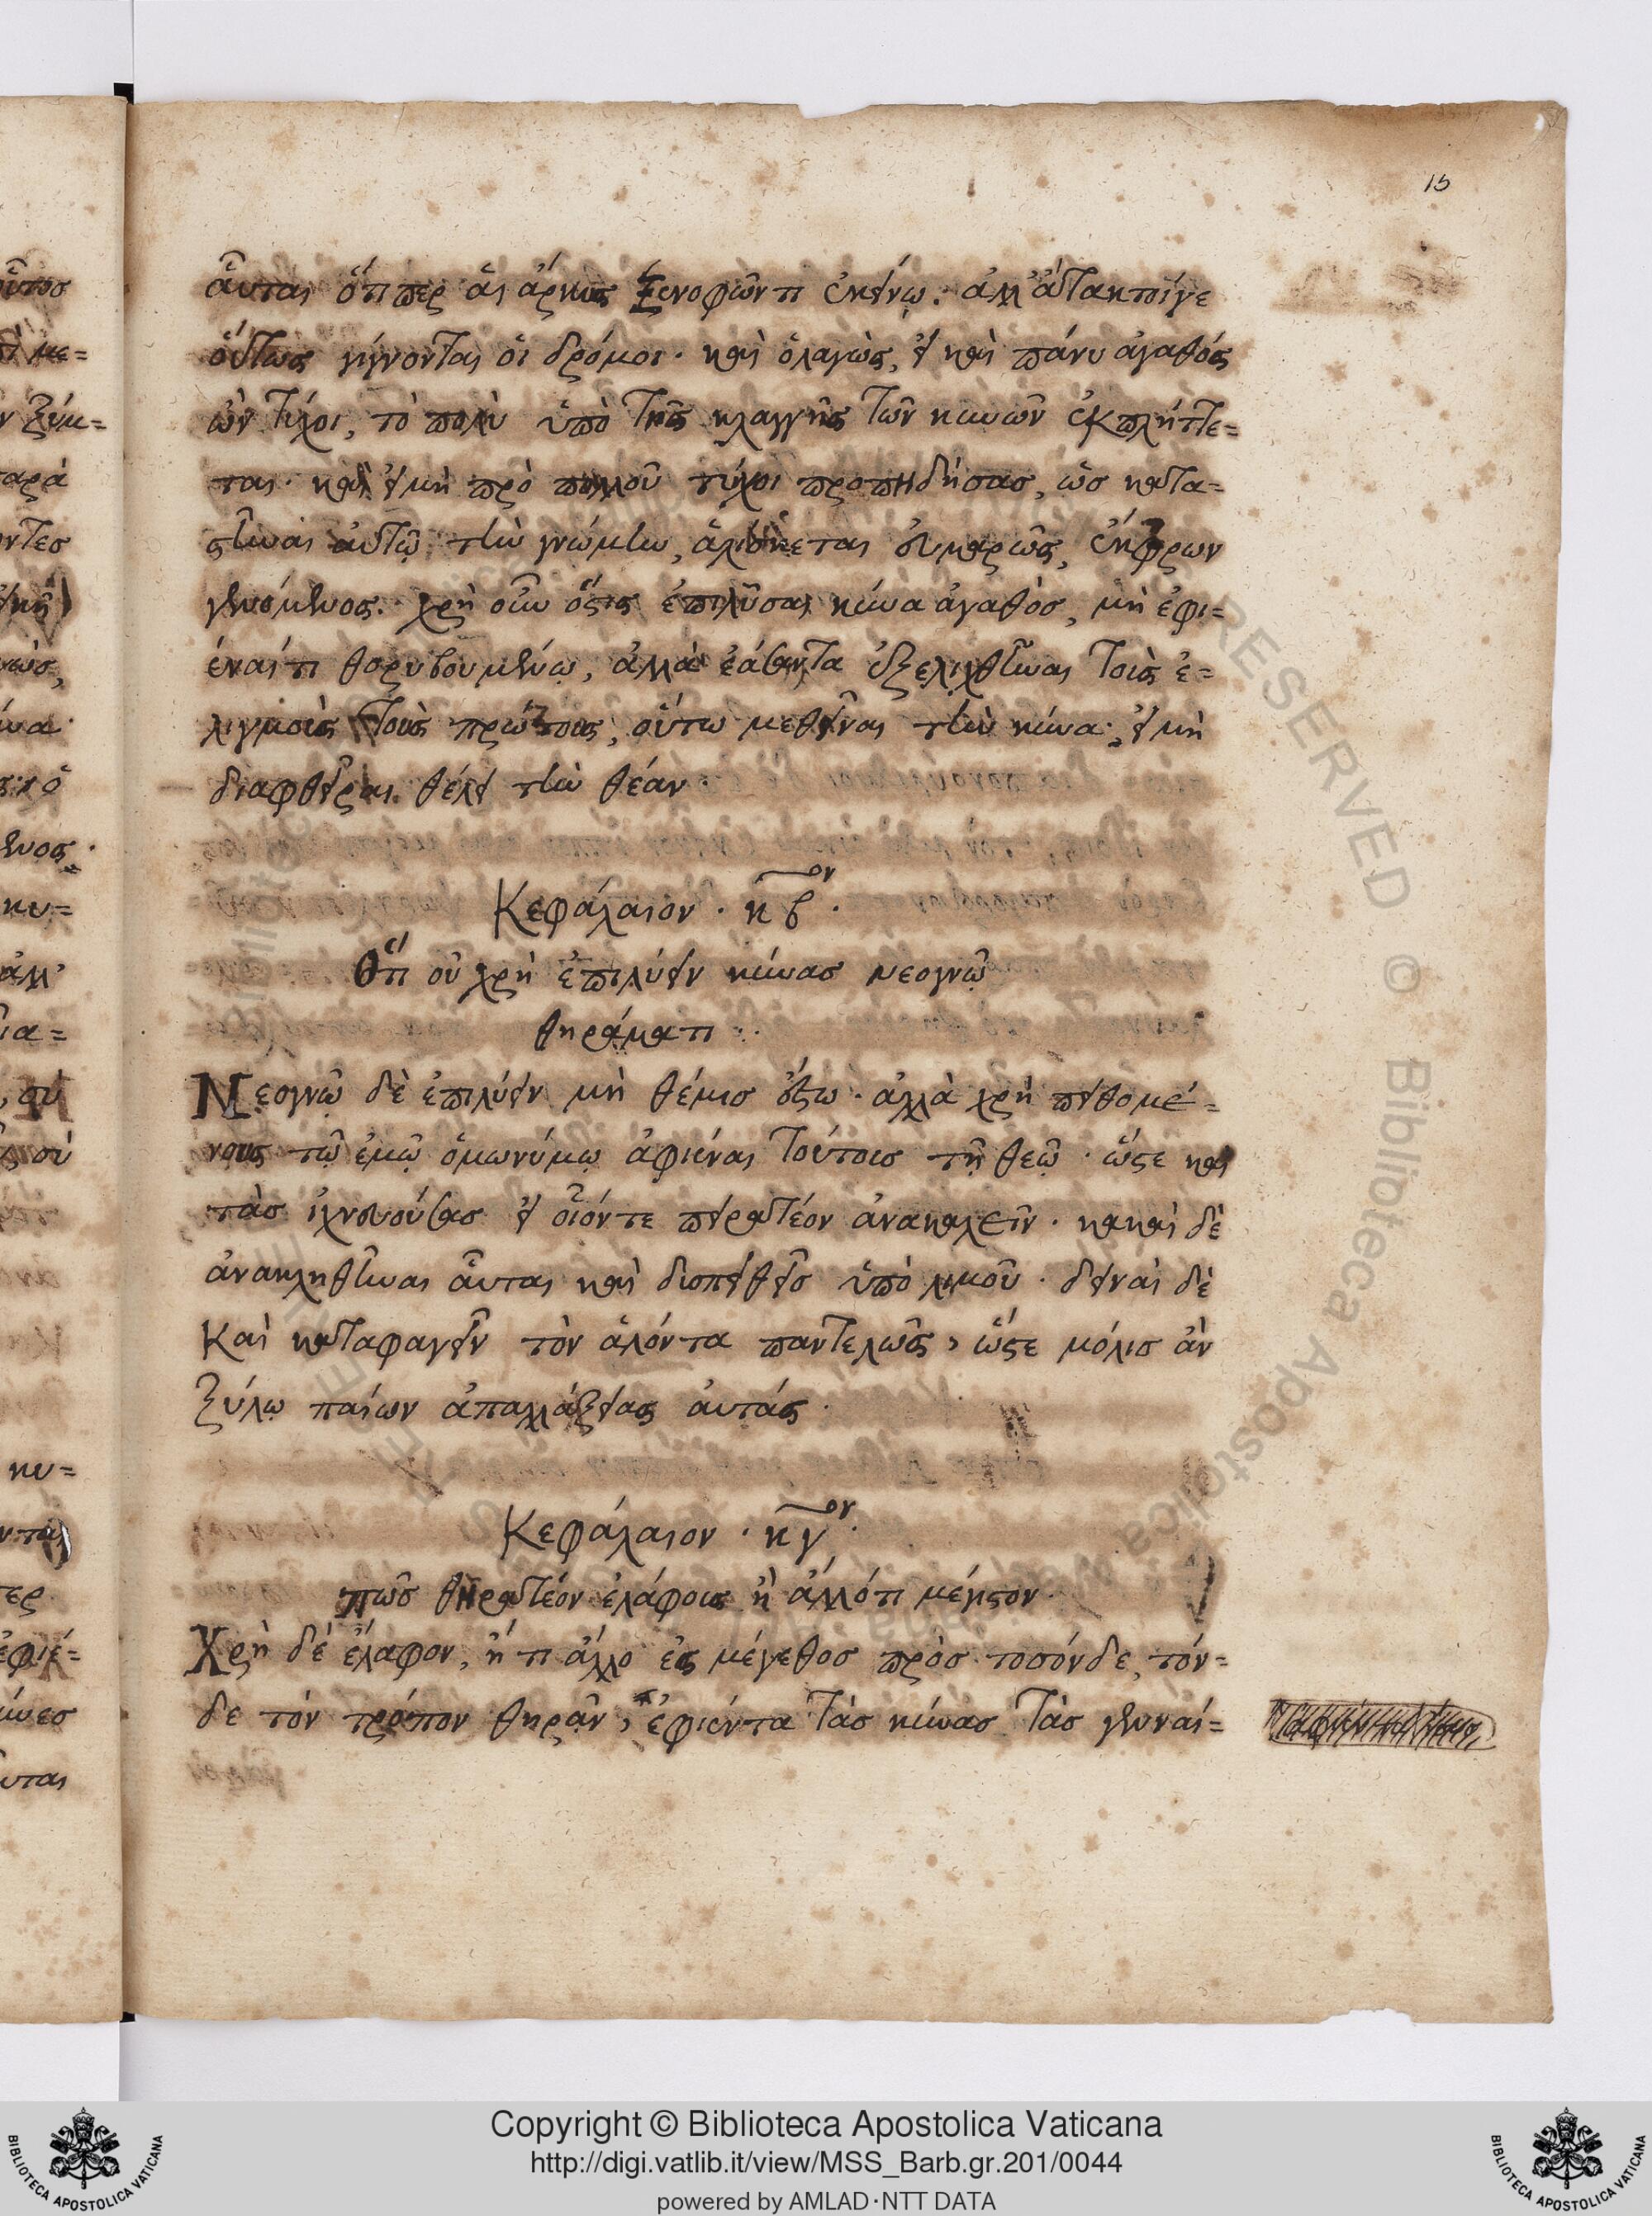 15
αὗται ὅτι περ αἱ ἄρκυς Ξενοφῶντι ἐκείνῳ. ἀλλ' ἄτακτοί γε
οὕτως γίγνονται οἱ δρόμοι· καὶ ὁ λαγὼς, εἰ καὶ πάνυ ἀγαθός
ὢν τύχοι, τὸ πολὺ ὑπὸ τῆς κλαγγῆς τῶν κυνῶν ἐκπλήττε=
ται· καὶ εἰ μὴ πρὸ πολλοῦ τύχοι προπηδήσας, ὡς κατα=
στῆναι αὐτῷ τὴν γνώμην, ἁλίσκεται εὐμαρῶς, ἔκφρων
γενόμενος. χρὴ οὖν ὅστις ἐπιλῦσαι κύνα ἀγαθὸς, μὴ ἐφι=
έναι ἔτι θορυβουμένῳ, ἀλλὰ ἐάσαντα ἐξελιχθῆναι τοὺς ἑ=
λιγμοὺς τοὺς πρώτους, οὕτω μεθεῖναι τὴν κύνα· εἰ μὴ
διαφθεῖραι θέλει τὴν θέαν
Κεφάλαιον · κβον ·
Ὅτι οὐ χρὴ ἐπιλύειν κύνας νεογνῷ
θηράματι · ·
Νεογνῷ δὲ ἐπιλύειν μὴ θέμις ἔστω · ἀλλὰ χρὴ πειθομέ=
νους τῷ ἐμῷ ὁμωνύμῳ ἀφιέναι τούτοις τῇ θεῷ · ὥστε καὶ
τὰς ἰχνευούσας εἰ οἷόντε πειρατέον ἀνακαλεῖν · κακαὶ δὲ
ἀνακληθῆναι αὗται καὶ δυσπειθεῖς ὑπὸ λιμοῦ · δειναὶ δὲ
Καὶ καταφαγεῖν τὸν ἁλόντα παντελῶς, ὥστε μόλις ἂν
ξύλῳ παίων ἀπαλλάξειας αὐτάς ·
Κεφάλαιον · κγον ·
πῶς θηρατέον ἐλάφους ἢ ἀλλότι μέγιστον ·
Χρὴ δὲ ἔλαφον, ἤ τι ἄλλο ἐς μέγεθος πρὸς τοσόνδε, τόν=
δε τὸν τρόπον θηρᾶν, ἐφιέντα τὰς κύνας τὰς γενναί=
Copyright © Biblioteca Apostolica Vaticana
http://digi.vatlib.it/view/MSS_Barb.gr.201/0044
powered by AMLAD·NTT DATA
BIBLIOTECA APOSTOLICA VATICANA
BIBLIOTECA APOSTOLICA VATICANA